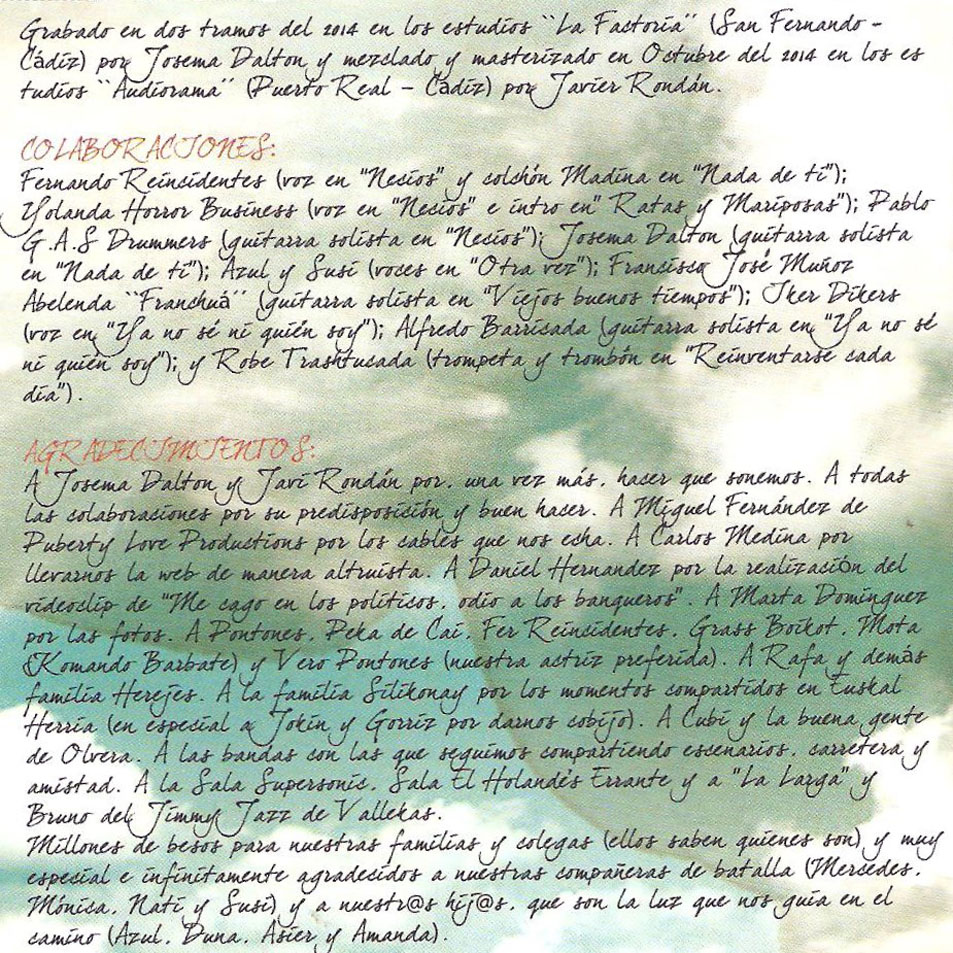 Grabado en dos tramos del 2014 en los estudios ``La Factoría´´ (San Fernando -
Cádiz) por Josema Dalton y mezclado y masterizado en Octubre del 2014 en los es
tudios ``Audiorama´´ (Puerto Real - Cádiz) por Javier Rondán.
COLABORACIONES:
Fernando Reincidentes (voz en "Necios" y colchón Madina en "Nada de ti");
Yolanda Horror Business (voz en "Necios" e intro en" Ratas y Mariposas"); Pablo
G.A.S Drummers (guitarra solista en "Necios"); Josema Dalton (guitarra solista
en "Nada de ti"); Azul y Susi (voces en "Otra vez"); Francisco José Muñoz
Abelenda ``Franchuá´´ (guitarra solista en "Viejos buenos tiempos"); Iker Dikers
(voz en "Ya no sé ni quién soy"); Alfredo Barricada (guitarra solista en "Ya no sé
ni quién soy"); y Robe Trashtucada (trompeta y trombón en "Reinventarse cada
día").
AGRADECIMIENTOS:
A Josema Dalton y Javi Rondán por, una vez más, hacer que sonemos. A todas
las colaboraciones por su predisposición y buen hacer. A Miguel Fernández de
Puberty Love Productions por los cables que nos echa. A Carlos Medina por
llevarnos la web de manera altruista. A Daniel Hernandez por la realización del
videoclip de "Me cago en los políticos, odio a los banqueros". A Marta Domínguez
por las fotos. A Pontones, Peka de Cai, Fer Reincidentes, Grass Boikot, Mota
(Komando Barbate) y Vero Pontones (nuestra actriz preferida). A Rafa y demás
familia Herejes. A la familia Silikonay por los momentos compartidos en Euskal
Herria (en especial a Jokin y Gorriz por darnos cobijo). A Cubi y la buena gente
de Olvera. A las bandas con las que seguimos compartiendo escenarios, carretera y
amistad. A la Sala Supersonic, Sala El Holandés Errante y a "La Larga" y
Bruno del Jimmy Jazz de Vallekas.
Millones de besos para nuestras familias y colegas (ellos saben quienes son) y muy
especial e infinitamente agradecidos a nuestras compañeras de batalla (Mercedes,
Mónica, Nati y Susi) y a nuestr@s hij@s, que son la luz que nos guía en el
camino (Azul, Duna, Asier y Amanda).